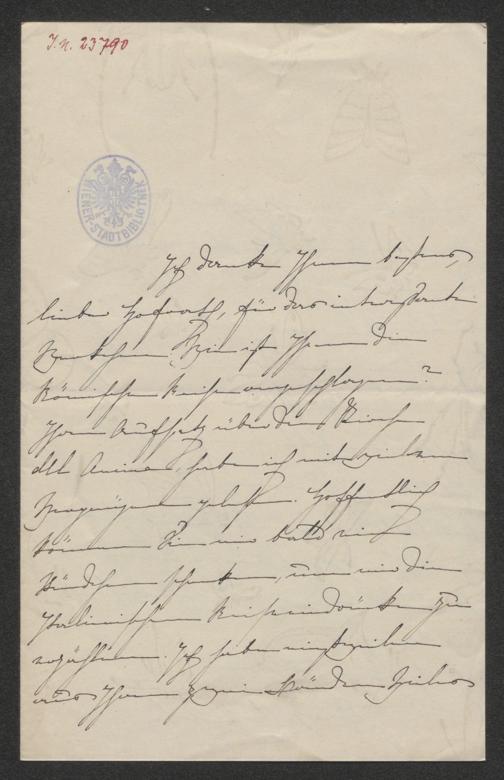 I.N. 23790
WIENER-STADTBIBLIOTHEK
Ich danke Ihnen bestens,
lieber Hofrath, für das interessante
Wie ist Ihnen die
Römische Reise angeschlagen?
Ihren Aufsatz über den
dell habe ich mit vielem
Vergnügen gelesen. Hoffentlich
können Sie mir bald ein
Stündchen schenken, um mir die
Italienischen Reiseeindrücke zu
erzählen. Ich habe einstweilen
aus Ihren zwei Bänden